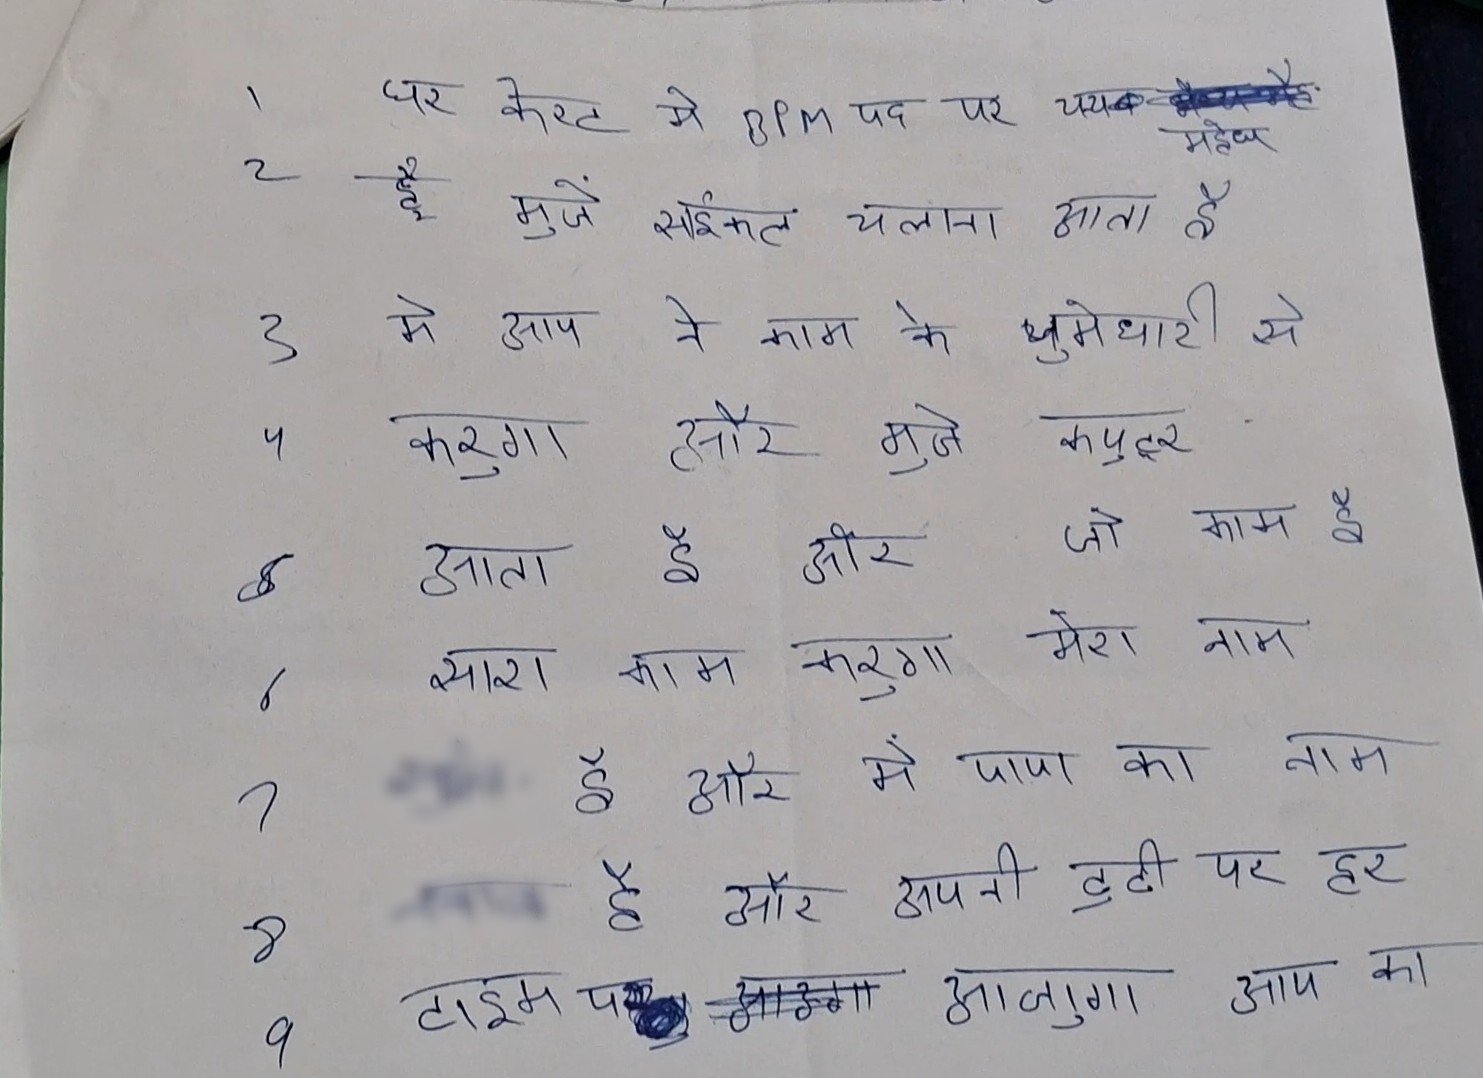 1 घर केस्ट मे BPM पद पर चयन
2 है मुजें सईकल चलाना आता है
3 मे आप ने काम के जुमेधारी से
4 करुगा और मुजे कपुटर
5 आता है और जो काम है
6 सारा काम करुगा मेरा नाम
7 है और में पापा का नाम
8 है और अपनी टुटी पर हर
9 टाइम पर आजुगा आप का